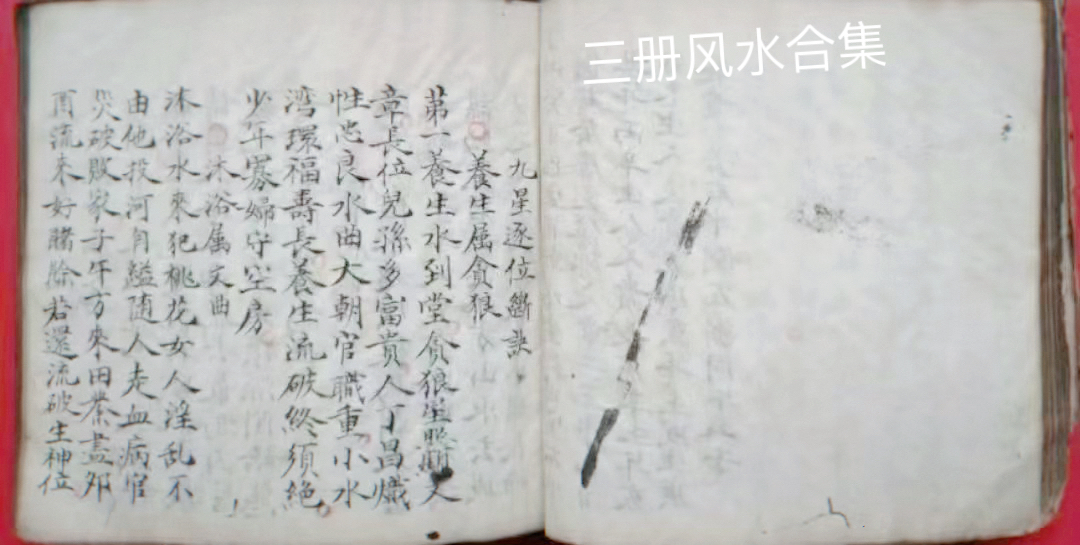 三册风水合集
九星逐位斷訣
養生属貪狼
苐一養生水到堂貪狼星照顯文
章長位兒孫多富貴人丁昌熾
性忠良水曲大朝官職重小水
湾環福壽長養生流破終須絶
少年寡婦守空房
沐浴属文曲
沐浴水來犯桃花女人淫乱不
由他投河自縊随人走血病官
災破敗家子午方來田業盡邜
酉流来好賭賒若還流破生神位